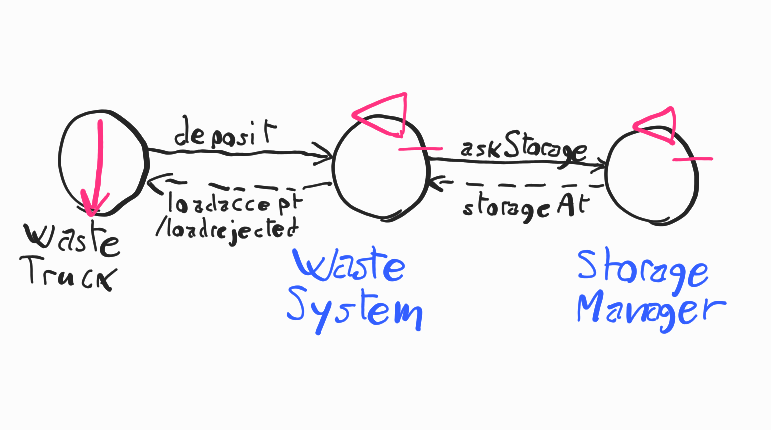 deposit
loadaccept
/loadrejected
askStorage
storageAt
Waste
Truck
Waste
System
Storage
Manager